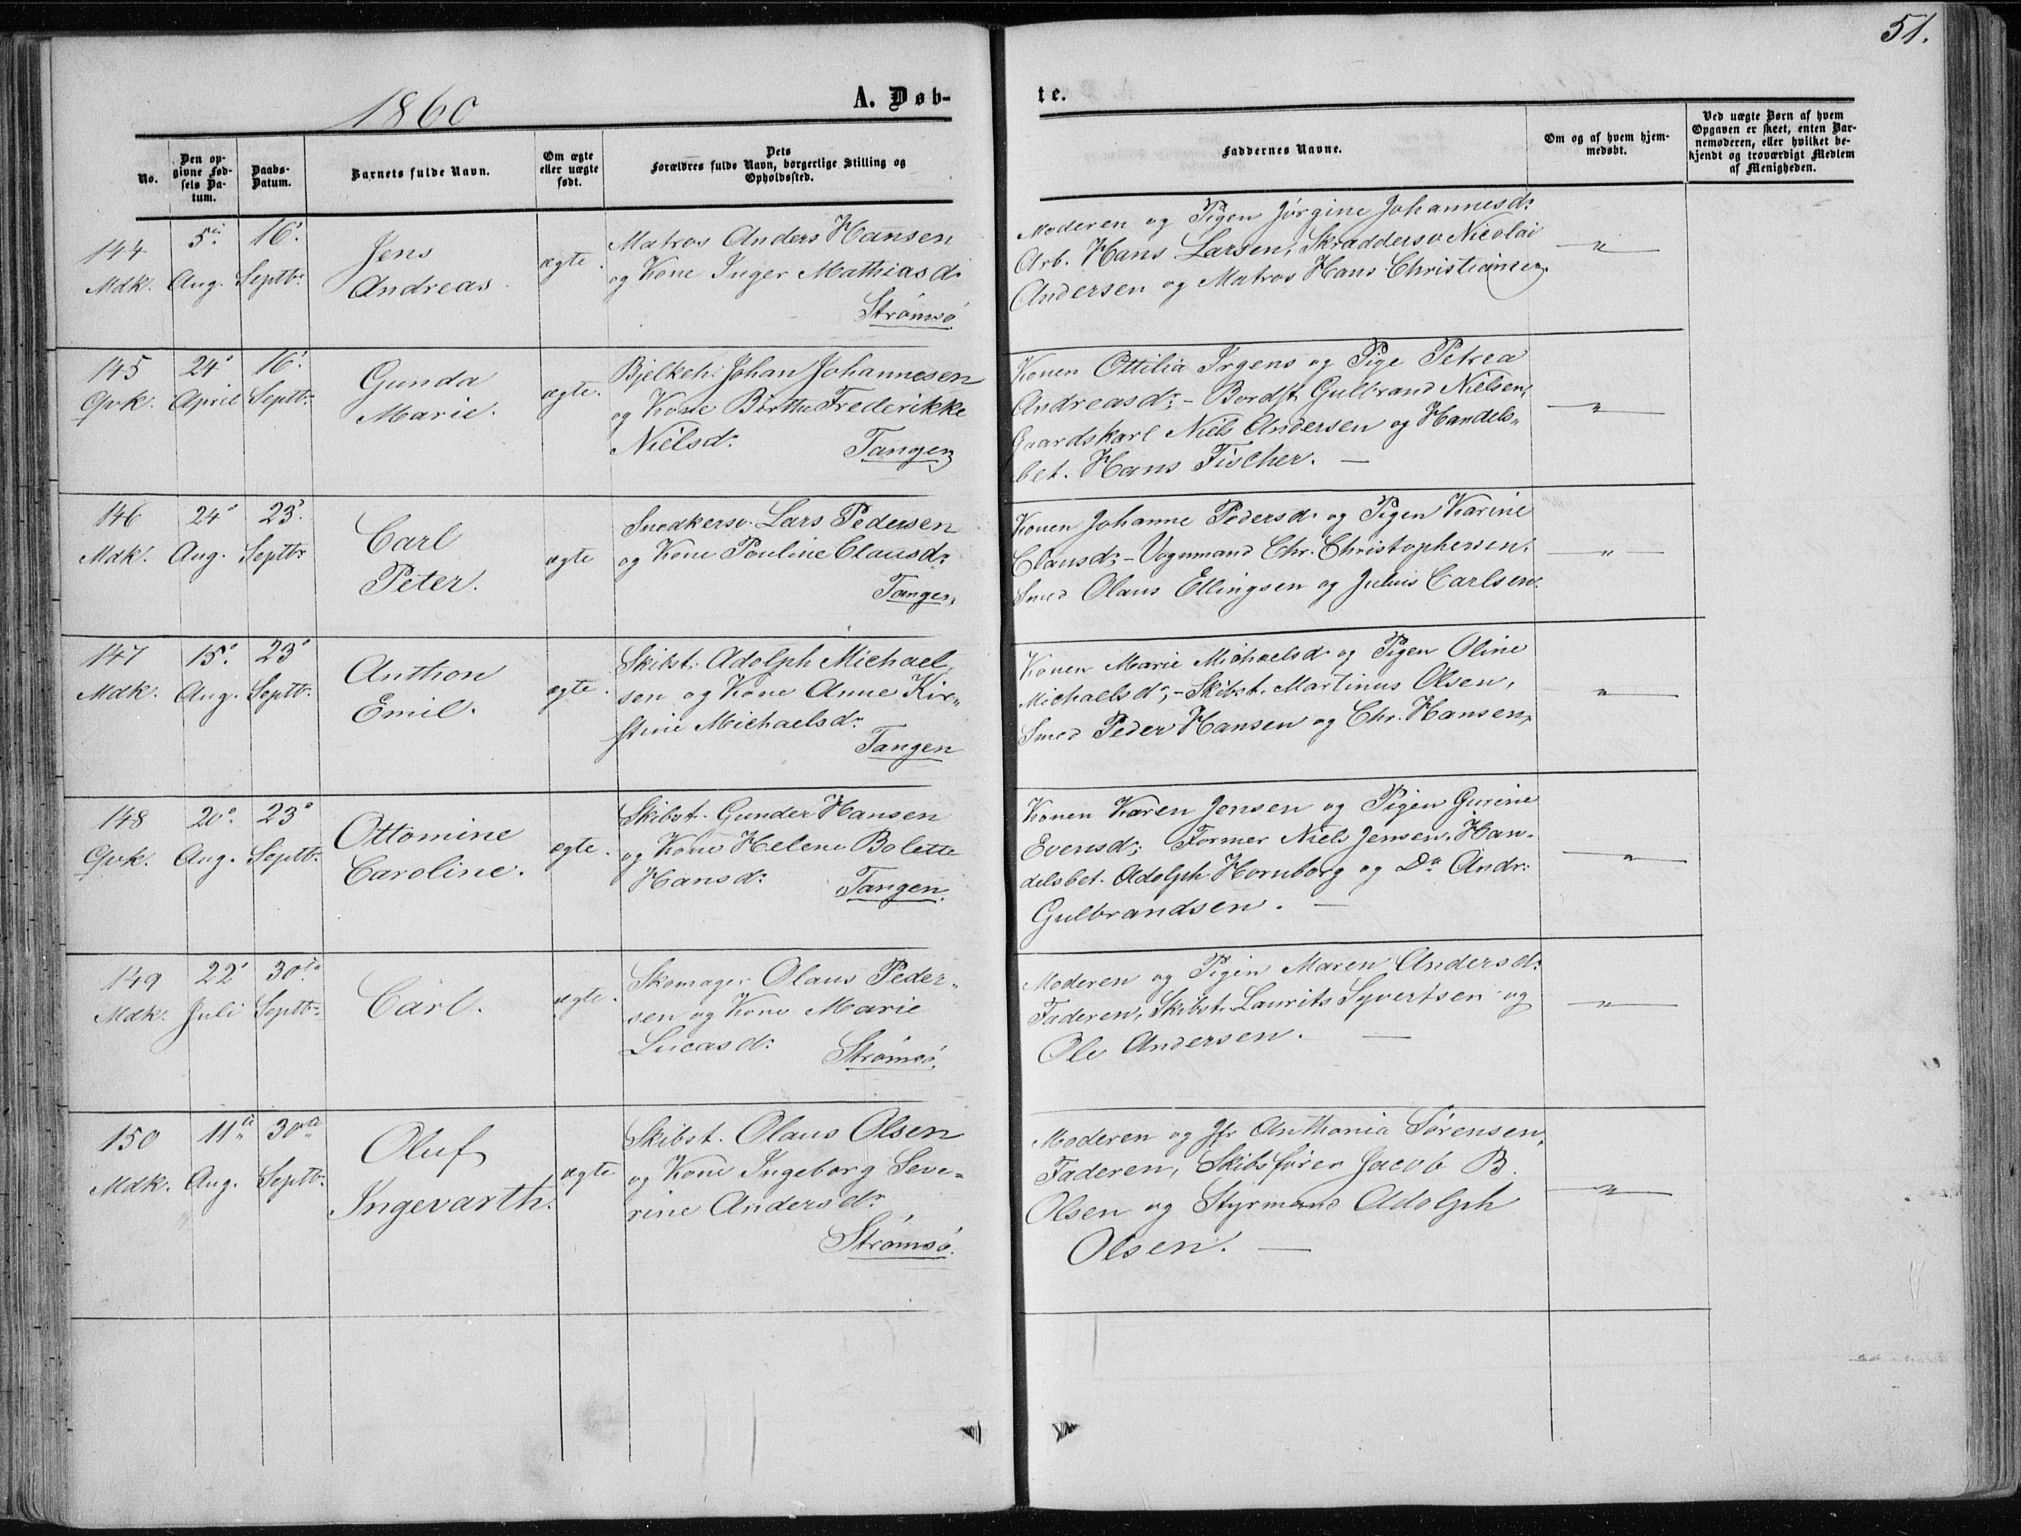 51.
1860
A. Døb-
te.
No.
Den op-
givne Fød-
sels Da-
tum.
Daabs-
Datum.
Barnets fulde Navn.
Om ægte
eller uægte
født.
Dets
Forældres fulde Navn, borgerlige Stilling og
Opholdssted.
Faddernes Navne.
Om og af hvem hjem-
medøbt.
Ved uægte Børn af hvem
Opgaven er skeet, enten Bar-
nemoderen, eller hvilket be-
kjendt og troværdigt Medlem
af Menigheden.
144
Mdk.
5te
Aug.
16.
Septbr.
Jens
Andreas.
ægte.
Matros Anders Hansen
og Kone Inger Mathiasd:
Strømsø
Moderen og Pigen Jørgine Johannesd:
Arb. Hans Larsen, Skræddersv Nicolai
Andersen og Matros Hans Christiansen.
"
145
Qvk.
24
April
16.
Septbr.
Gunda
Marie.
ægte.
Bjelkeh. Johan Johannesen
og Kone Børthe Frederikke
Nielsd:
Tangen
Konen Ottilia Irgens og Pige Petrea
Andreasd: - Bordst. Gulbrand Nielsen,
Gaardskarl Niels Andersen og Handels-
bet. Hans Fischer. —
"
146
Mdk.
24
Aug.
23.
Septbr
Carl
Peter.
ægte
Snedkersv. Lars Pedersen
og Kone Pouline Clausd:
Tangen,
Konen Johanne Pedersd. og Pigen Karine
Clausd: - Vognmand Chr. Christophersen,
Smed Olaus Ellingsen og Julius Carlsen.
"
147
Mdk.
15.
Aug.
23
Septbr.
Anthon
Emil.
ægte.
Skibst. Adolph Michael-
sen og Kone Anne Kir-
stine Michaelsd:
Tangen
Konen Marie Michaelsd. og Pigen Oline
Michaelsd; - Skibst. Martinus Olsen,
Smed Peder Hansen og Chr. Hansen,
"
148
Qvk.
20.
Aug.
23
Septbr.
Ottomine
Caroline.
ægte.
Skibst. Gunder Hansen
og Kone Helene Bolette
Hansd:
Tangen.
Konen Karen Jensen og Pigen Gurine
Evensd; Former Niels Jensen, Han-
delsbet. Adolph Hornborg og Do Andr:
Gulbrandsen. —
"
149
Mdk.
22
Juli
30te
Septbr.
Carl.
ægte.
Skomager Olaus Peder-
sen og Kone Marie
Lucasd:
Strømsø.
Moderen og Pigen Maren Andersd:
Faderen, Skibst. Laurits Syvertsen og
Ole Andersen. —
"
150
Mdk.
11te
Aug.
30te
Septbr.
Oluf
Ingevarth.
ægte
Skibst. Olaus Olsen
og Kone Ingeborg Seve-
rine Andersd:
Strømsø.
Moderen og Jfr Anthonia Sørensen,
Faderen, Skibsfører Jacob B.
Olsen og Styrmand Adolph
Olsen. —
"